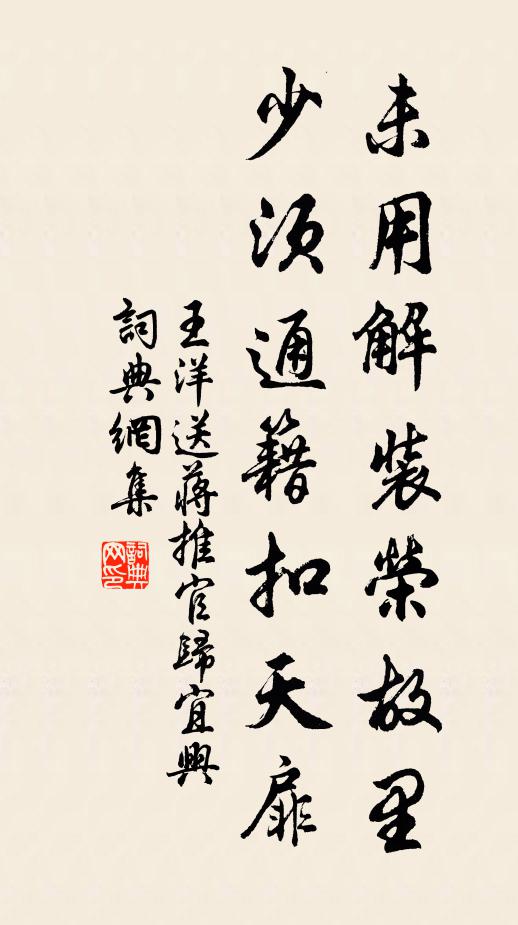 未用解裝榮故里
少須通籍扣天扉
王洋送蔣推官歸宜興
詞典網集
詞典网印